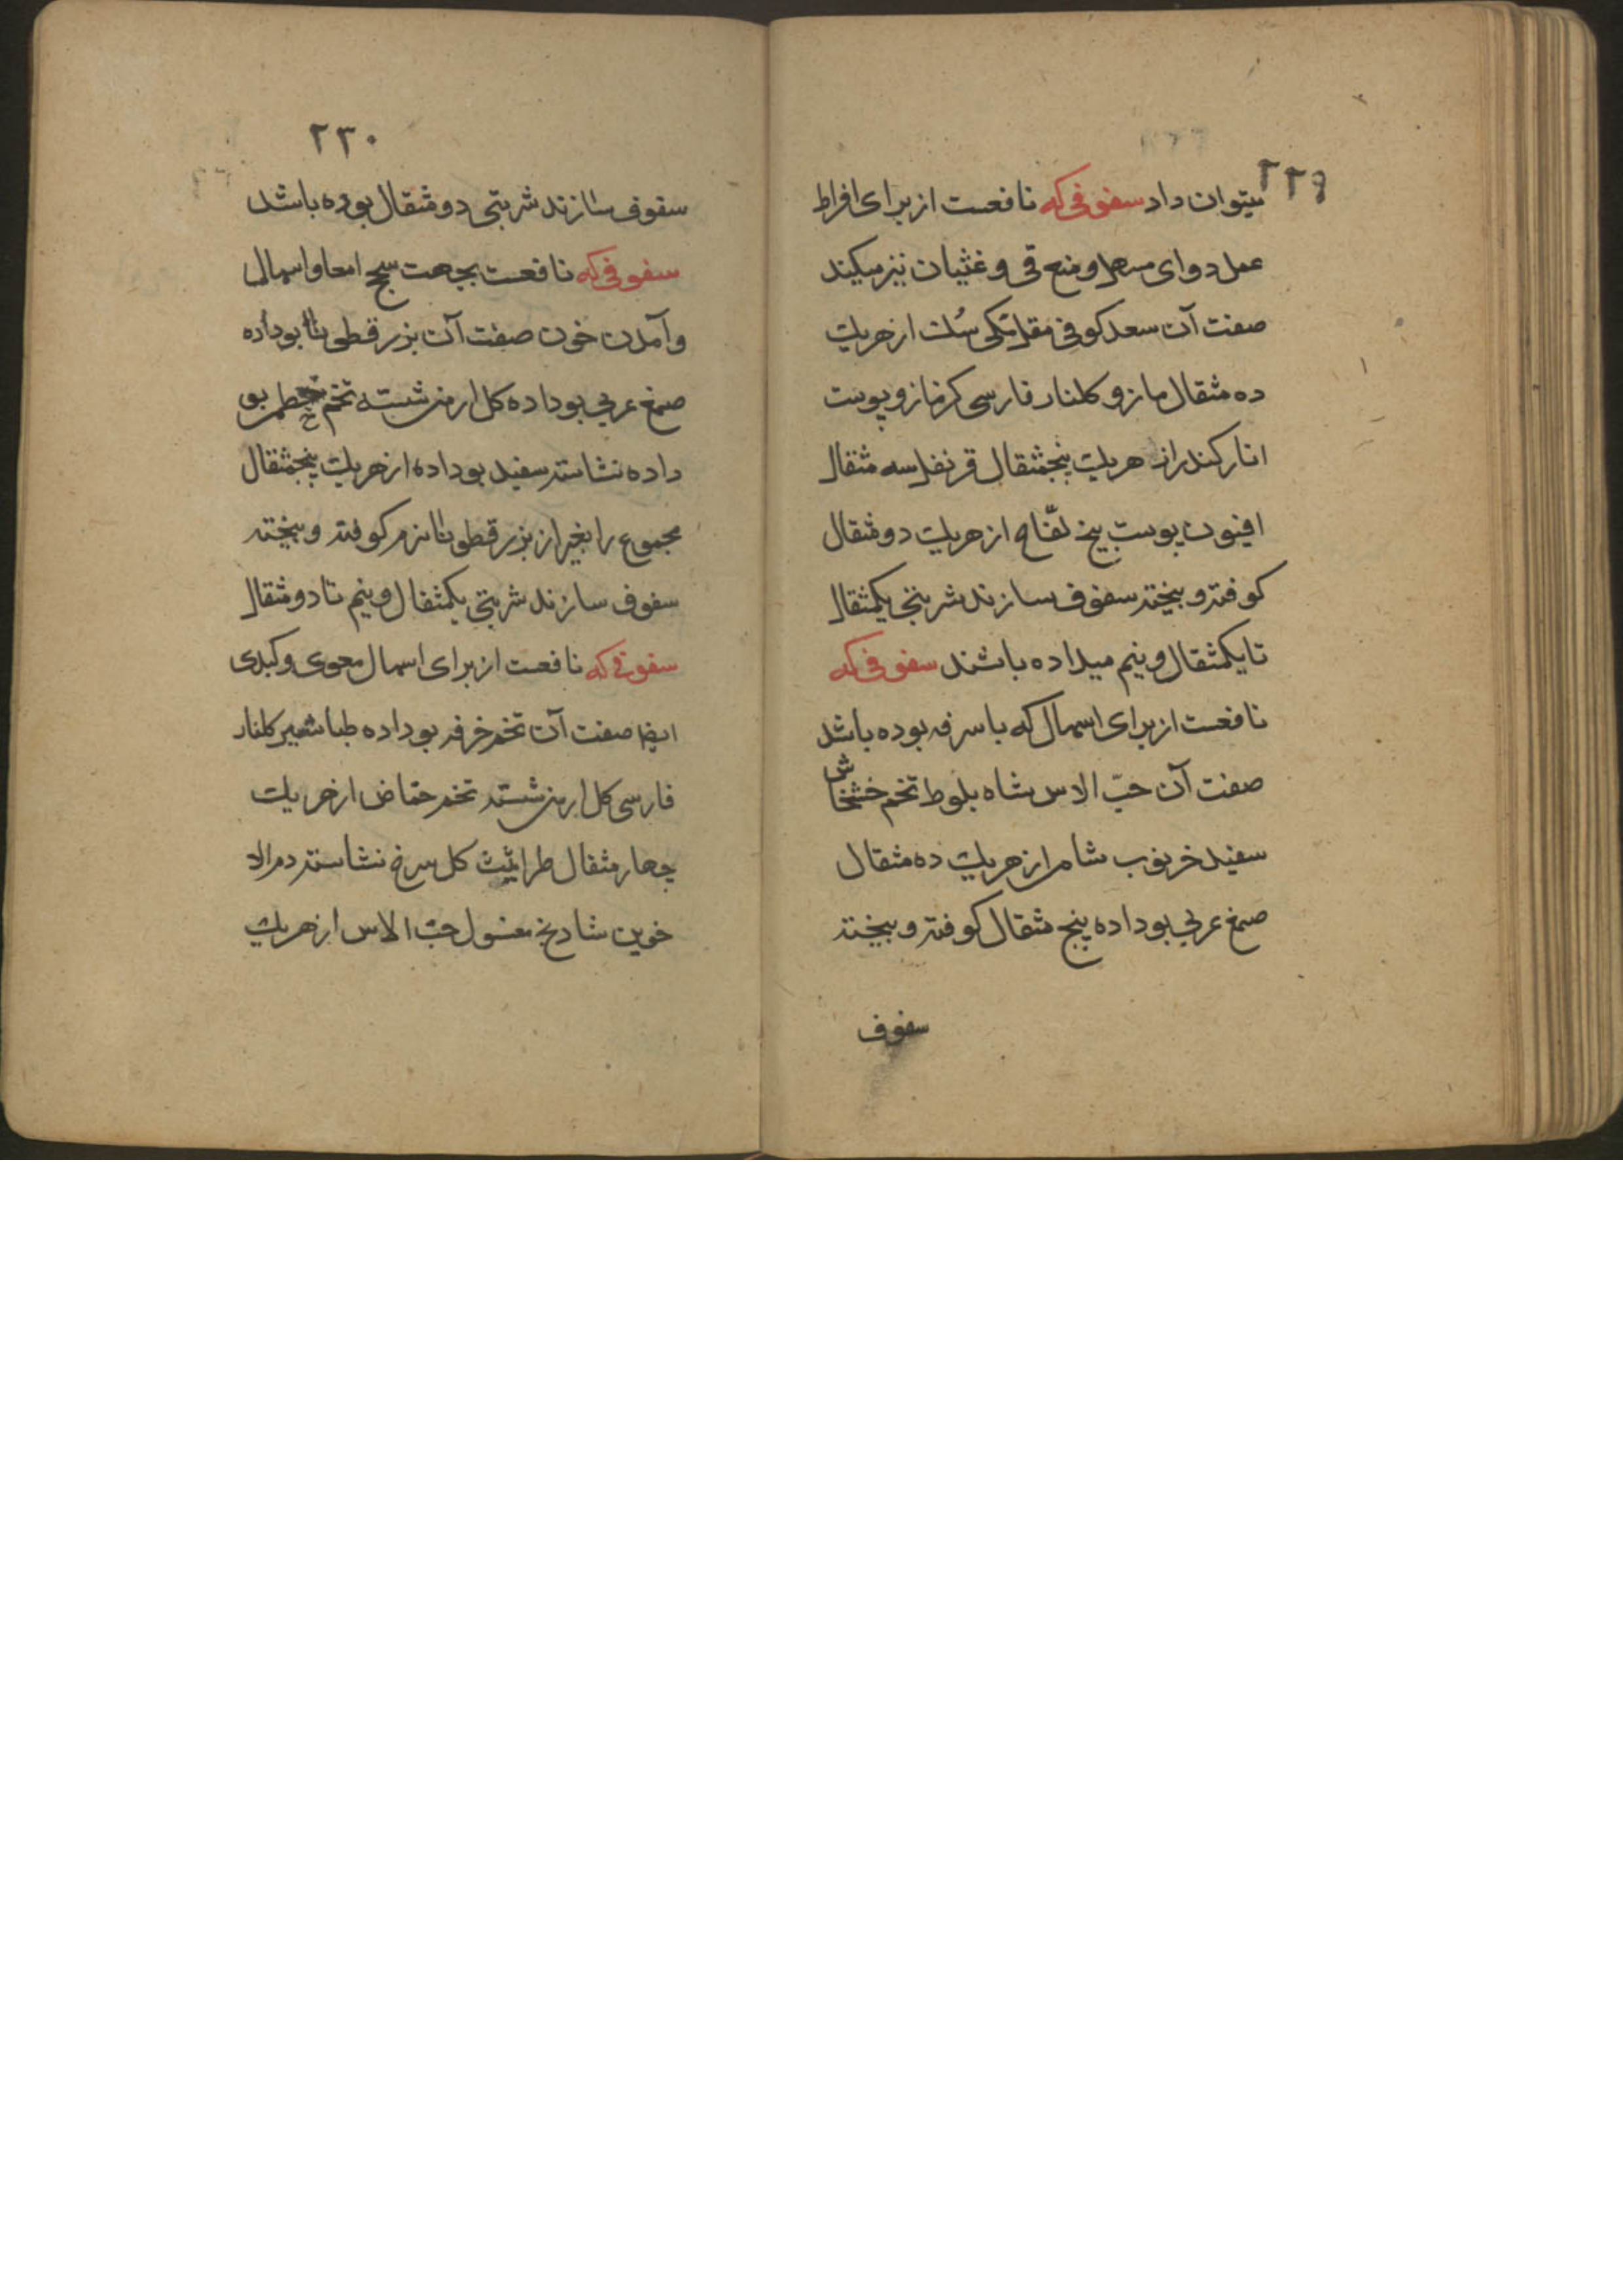 ۲۲۹
میتوان داد سفوفی که نافعست از برای افراط
عمل دوای مسهل و منع قی و غثیان نیز میکند
صفت آن سعد کوفی مقل مکی سک از هریک
ده مثقال مازو کلنار فارسی کزمازو پوست
انار کندر از هریک پنجمثقال قرنفل سه مثقال
افیون پوست بیخ لفّاح از هریک دو مثقال
کوفته و بیخته سفوف سازند شربتی یکمثقال
تا یکمثقال و نیم میداده باشند سفوفی که
نافعست از برای اسهال که با سرفه بوده باشد
صفت آن حبّ الاس شاه بلوط تخم خشخاش
سفید خرنوب شامی از هریک ده مثقال
صمغ عربی بوداده پنج مثقال کوفته و بیخته
سفوف
۲۳۰
سفوف سازند شربتی دو مثقال بوده باشد
سفوفی که نافعست بجهت سحج امعا و اسهال
و آمدن خون صفت آن بزرقطونا بوداده
صمغ عربی بوداده کل ارمنی شسته تخم خطمی بو
داده نشاسته سفید بوداده از هریک پنجمثقال
مجموع را بغیر از بزرقطونا نرم کوفته و بیخته
سفوف سازند شربتی یکمثقال و نیم تا دو مثقال
سفوفی که نافعست از برای اسهال معوی و کبدی
ایضا صفت آن تخم خرفه بوداده طباشیر کلنار
فارسی کل ارمنی شسته تخم حماض از هریک
چهار مثقال طراثیث کل سرخ نشاسته دم الا
خوین شادنج مغسول حبّ الاس از هریک